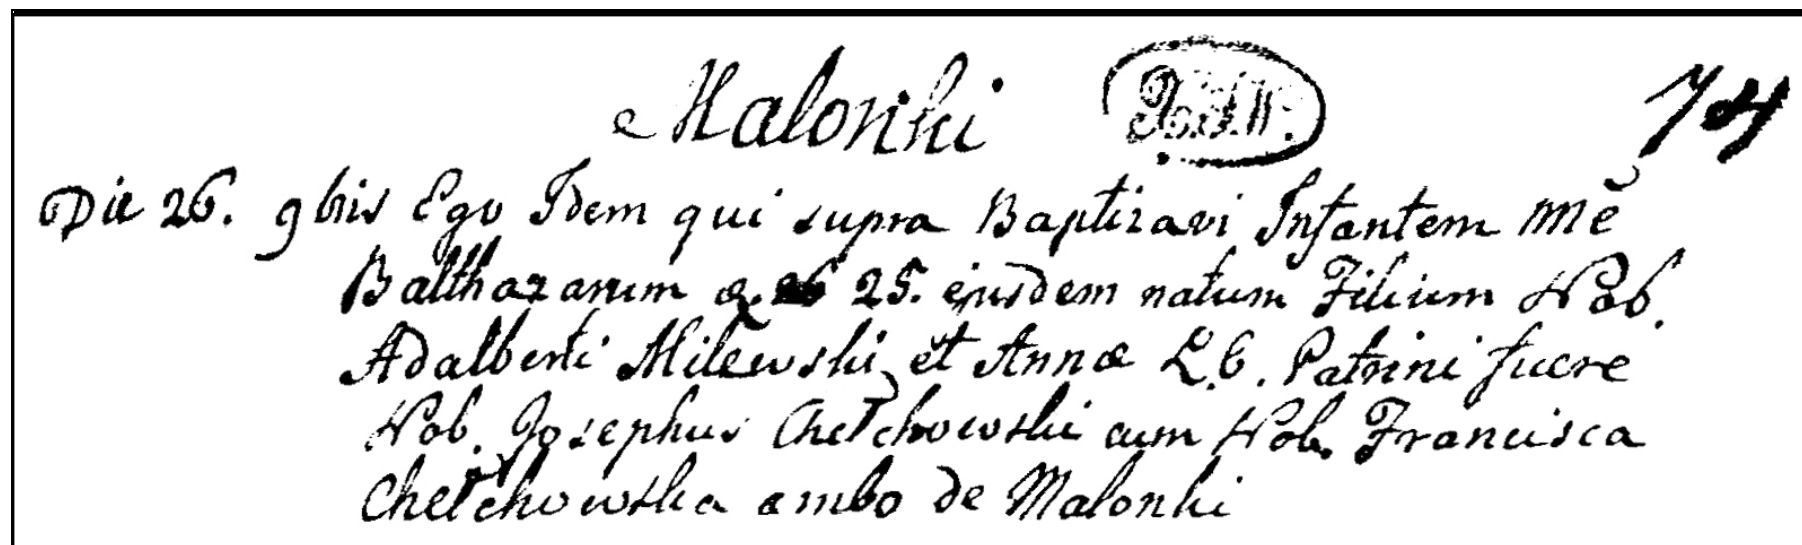 Malonki 74
Die 26. 9bris Ego Idem qui supra Baptizavi Infantem Nñe
Balthazarum a. 25. ejusdem natum Filium Nob.
Adalberti Milewski et Annæ L.C. Patrini fuere
Nob. Josephus Chełchowski cum Nob. Francisca
Chełchowska ambo de Malonki